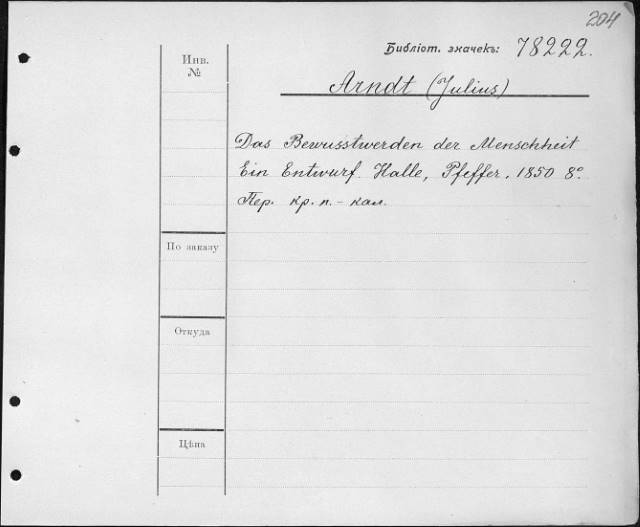 204
Библіот. значекъ: 78222.
Инв.
№
Arndt (Julius)
Das Bewusstwerden der Menschheit
Ein Entwurf. Halle, Pfeffer. 1850 8º.
Пер. кр. п. - кал.
По заказу
Откуда
Цѣна